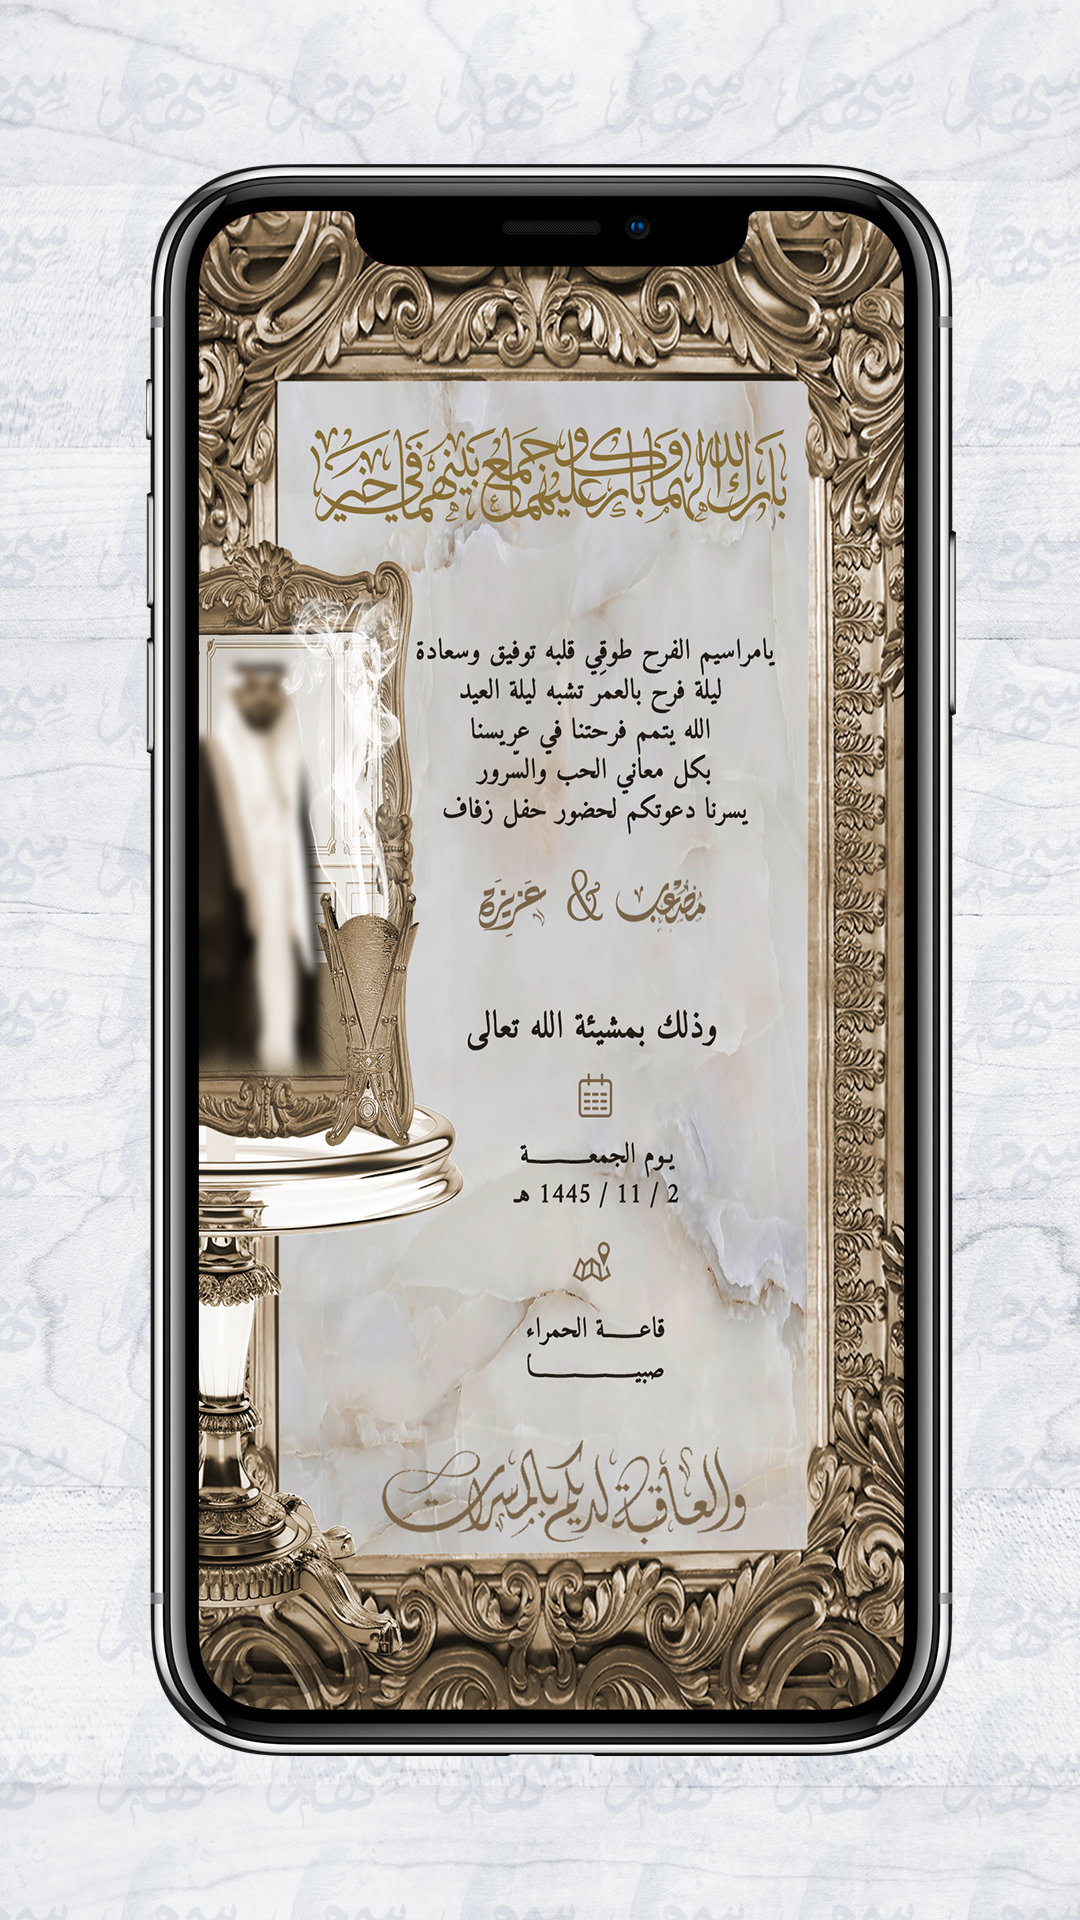 بَارَكَ اللهُ لَهُمَا وَبَارَكَ عَلَيْهِمَا وَجَمَعَ بَيْنَهُمَا فِي خَيْرٍ
يامراسيم الفرح طوقِي قلبه توفيق وسعادة
ليلة فرح بالعمر تشبه ليلة العيد
الله يتمم فرحتنا في عريسنا
بكل معاني الحب والسّرور
يسرنا دعوتكم لحضور حفل زفاف
مُصْعَب & عَزِيزَة
وذلك بمشيئة الله تعالى
يـوم الجمعــــــــة
2 / 11 / 1445 هـ
قاعـــة الحمراء
صبيــــــــــــا
والعاقبة لديكم بالمسرات